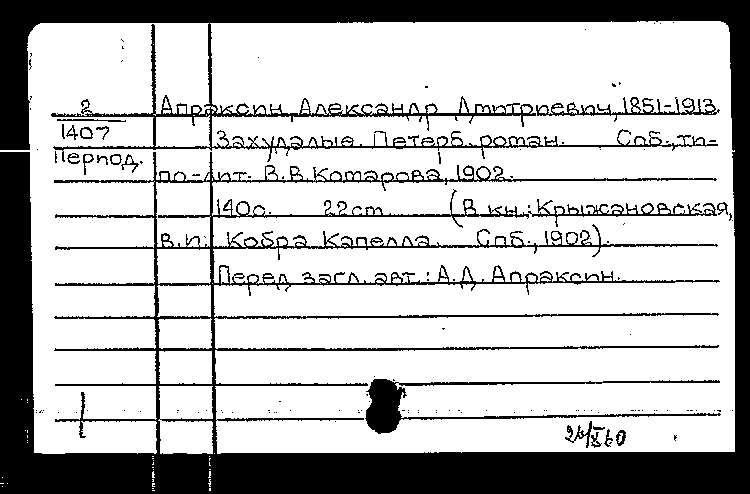 2
1407
Период.
Апраксин, Александр Дмитриевич, 1851-1913.
Захудалые. Петерб. роман. Спб., ти-
по-лит. В.В. Комарова, 1902.
140с. 22см (В кн.: Крыжановская,
В.И. Кобра Капелла. Спб., 1902).
Перед загл. авт.: А.Д. Апраксин.